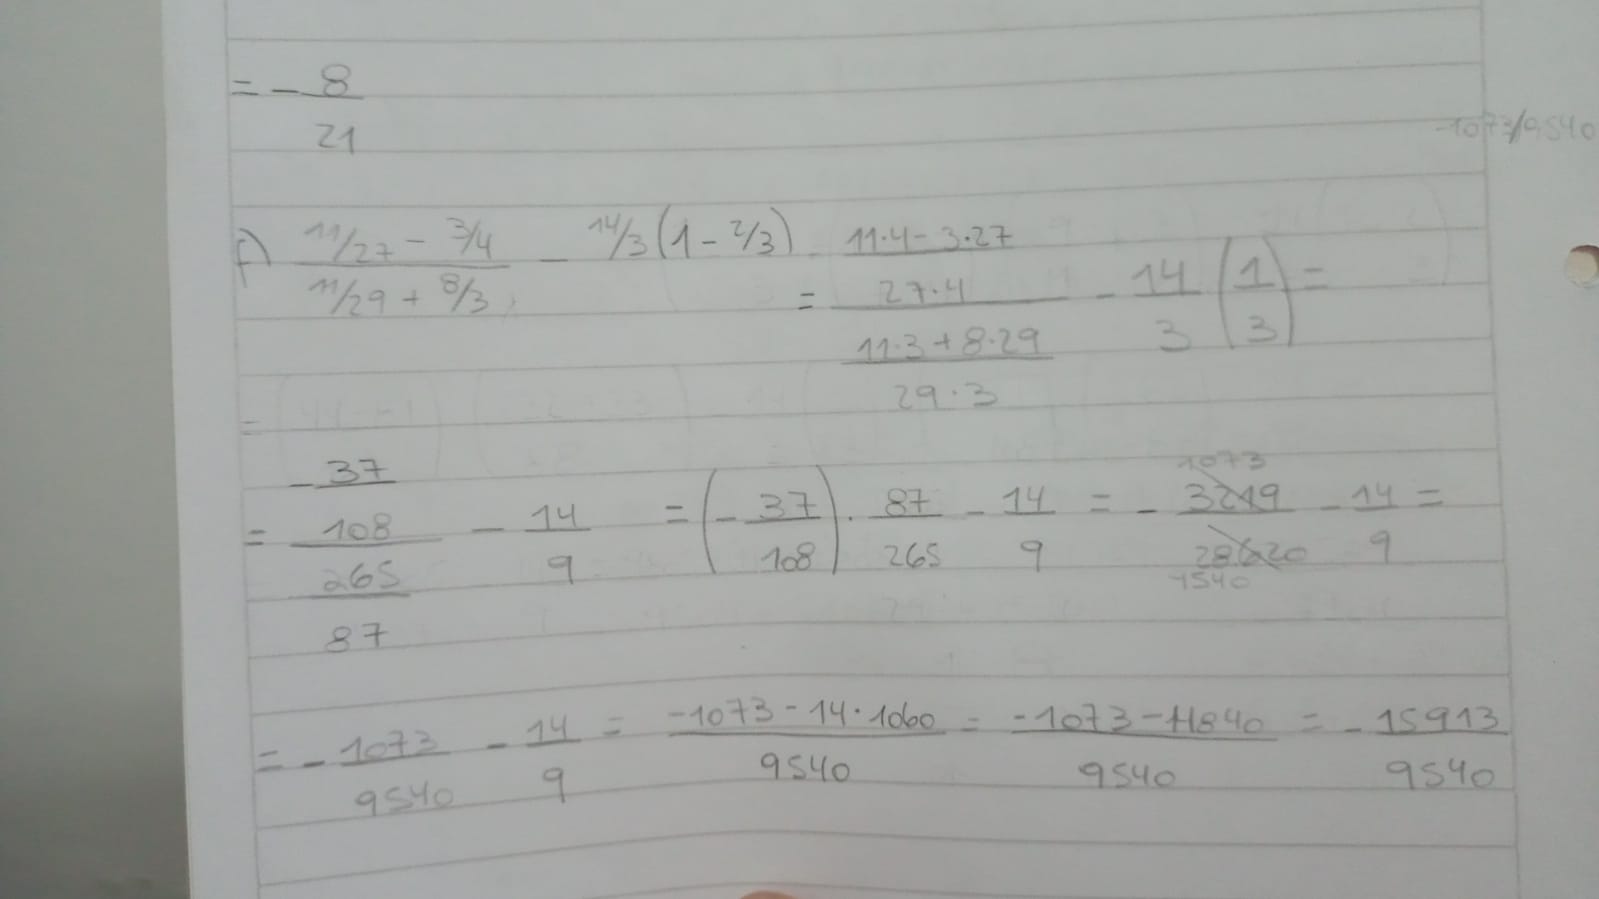 = - 8/21
-1073/9540
f) (11/27 - 3/4)/(11/29 + 8/3) - 14/3 (1 - 2/3) = ((11·4 - 3·27)/(27·4))/((11·3 + 8·29)/(29·3)) - 14/3 (1/3) =
=
= (-37/108)/(265/87) - 14/9 = (-37/108) · 87/265 - 14/9 = - 3219/28620 - 14/9 =
1073
9540
= - 1073/9540 - 14/9 = (-1073 - 14·1060)/9540 = (-1073 - 14840)/9540 = - 15913/9540